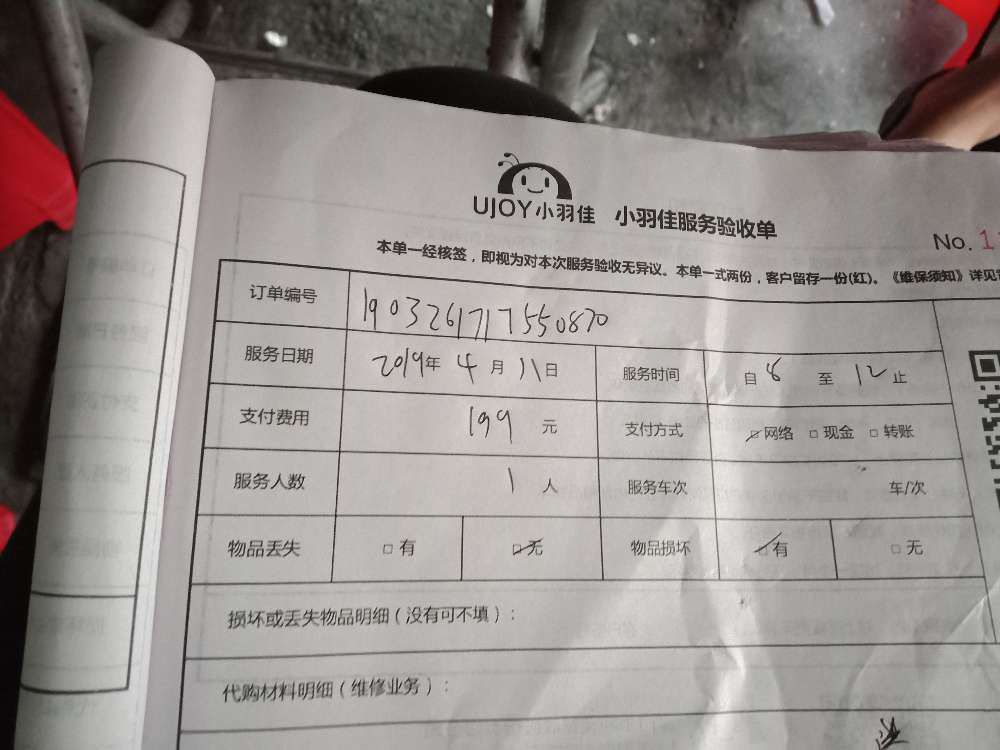 UJOY小羽佳 小羽佳服务验收单
No. 1
本单一经核签，即视为对本次服务验收无异议。本单一式两份，客户留存一份(红)。《维保须知》详见
订单编号 1903261717550870
服务日期 2019年 4 月 11日 服务时间 自 8 至 12 止
支付费用 199 元 支付方式 ☑网络 □现金 □转账
服务人数 1 人 服务车次 车/次
物品丢失 □有 ☑无 物品损坏 ☑有 □无
损坏或丢失物品明细（没有可不填）：
代购材料明细（维修业务）：